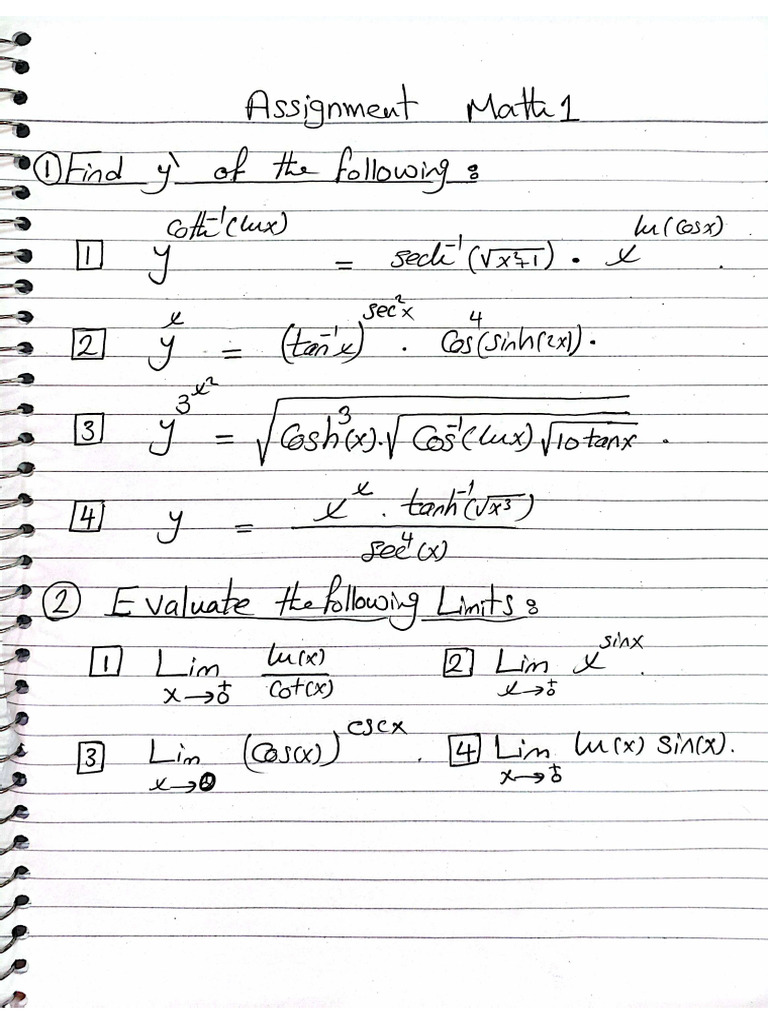 Assignment Math 1
① Find y` of the following :
1 y^(coth⁻¹(lnx)) = sech⁻¹(√(x²+1)) · x^(ln(cosx)) .
2 y^x = (tan⁻¹x)^(sec²x) · cos⁴(sinh(2x)) .
3 y^(3^(x²)) = √(cosh³(x) · √(cos⁻¹(lnx) √(10 tanx))) .
4 y = (x^x · tanh⁻¹(√x³)) / (sec⁴(x))
② Evaluate the following Limits :
1 Lim x→0⁺ ln(x) / cot(x) 2 Lim x→0⁺ x^(sinx) .
3 Lim x→0 (cos(x))^(cscx) . 4 Lim x→0⁺ ln(x) sin(x) .